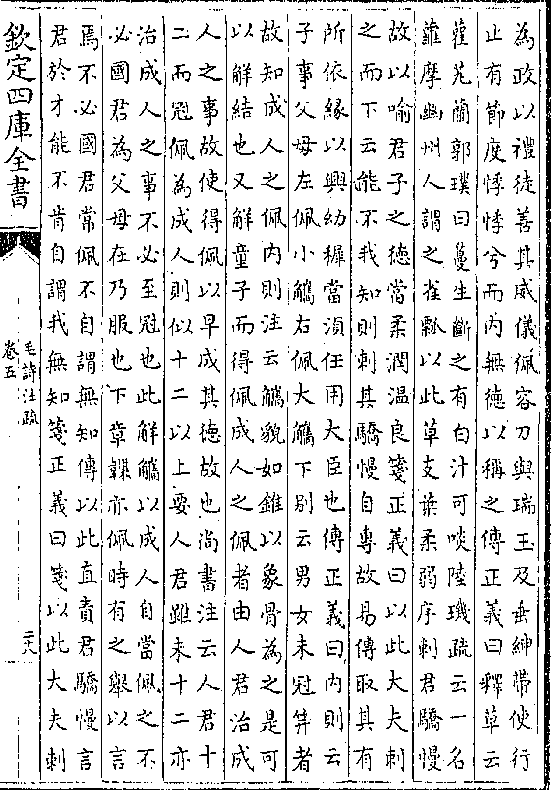 為政以禮徒善其威儀佩容刀與瑞玉及垂紳帶使行
止有節度悸悸兮而內無德以稱之傳正義曰釋草云
雚芄蘭郭璞曰蔓生斷之有白汁可啖陸璣疏云一名
蘿摩幽州人謂之雀瓢以此草支葉柔弱序刺君驕慢
故以喻君子之德當柔潤溫良箋正義曰以此大夫刺
之而下云能不我知則刺其驕慢自專故易傳取其有
所依緣以興幼穉當須任用大臣也傳正義曰內則云
子事父母左佩小觿右佩大觿下别云男女未冠笄者
故知成人之佩內則注云觿貌如錐以象骨為之是可
以解結也又解童子而得佩成人之佩者由人君治成
人之事故使得佩以早成其德故也尚書注云人君十
二而冠佩為成人則似十二以上要人君雖未十二亦
治成人之事不必至冠也此解觿以成人自當佩之不
必國君為父母在乃服也下章韘亦佩時有之舉以言
焉不必國君常佩不自謂無知傳以此直責君驕慢言
君於才能不肯自謂我無知箋正義曰箋以此大夫刺
欽定四庫全書
毛詩注疏
卷五
二六